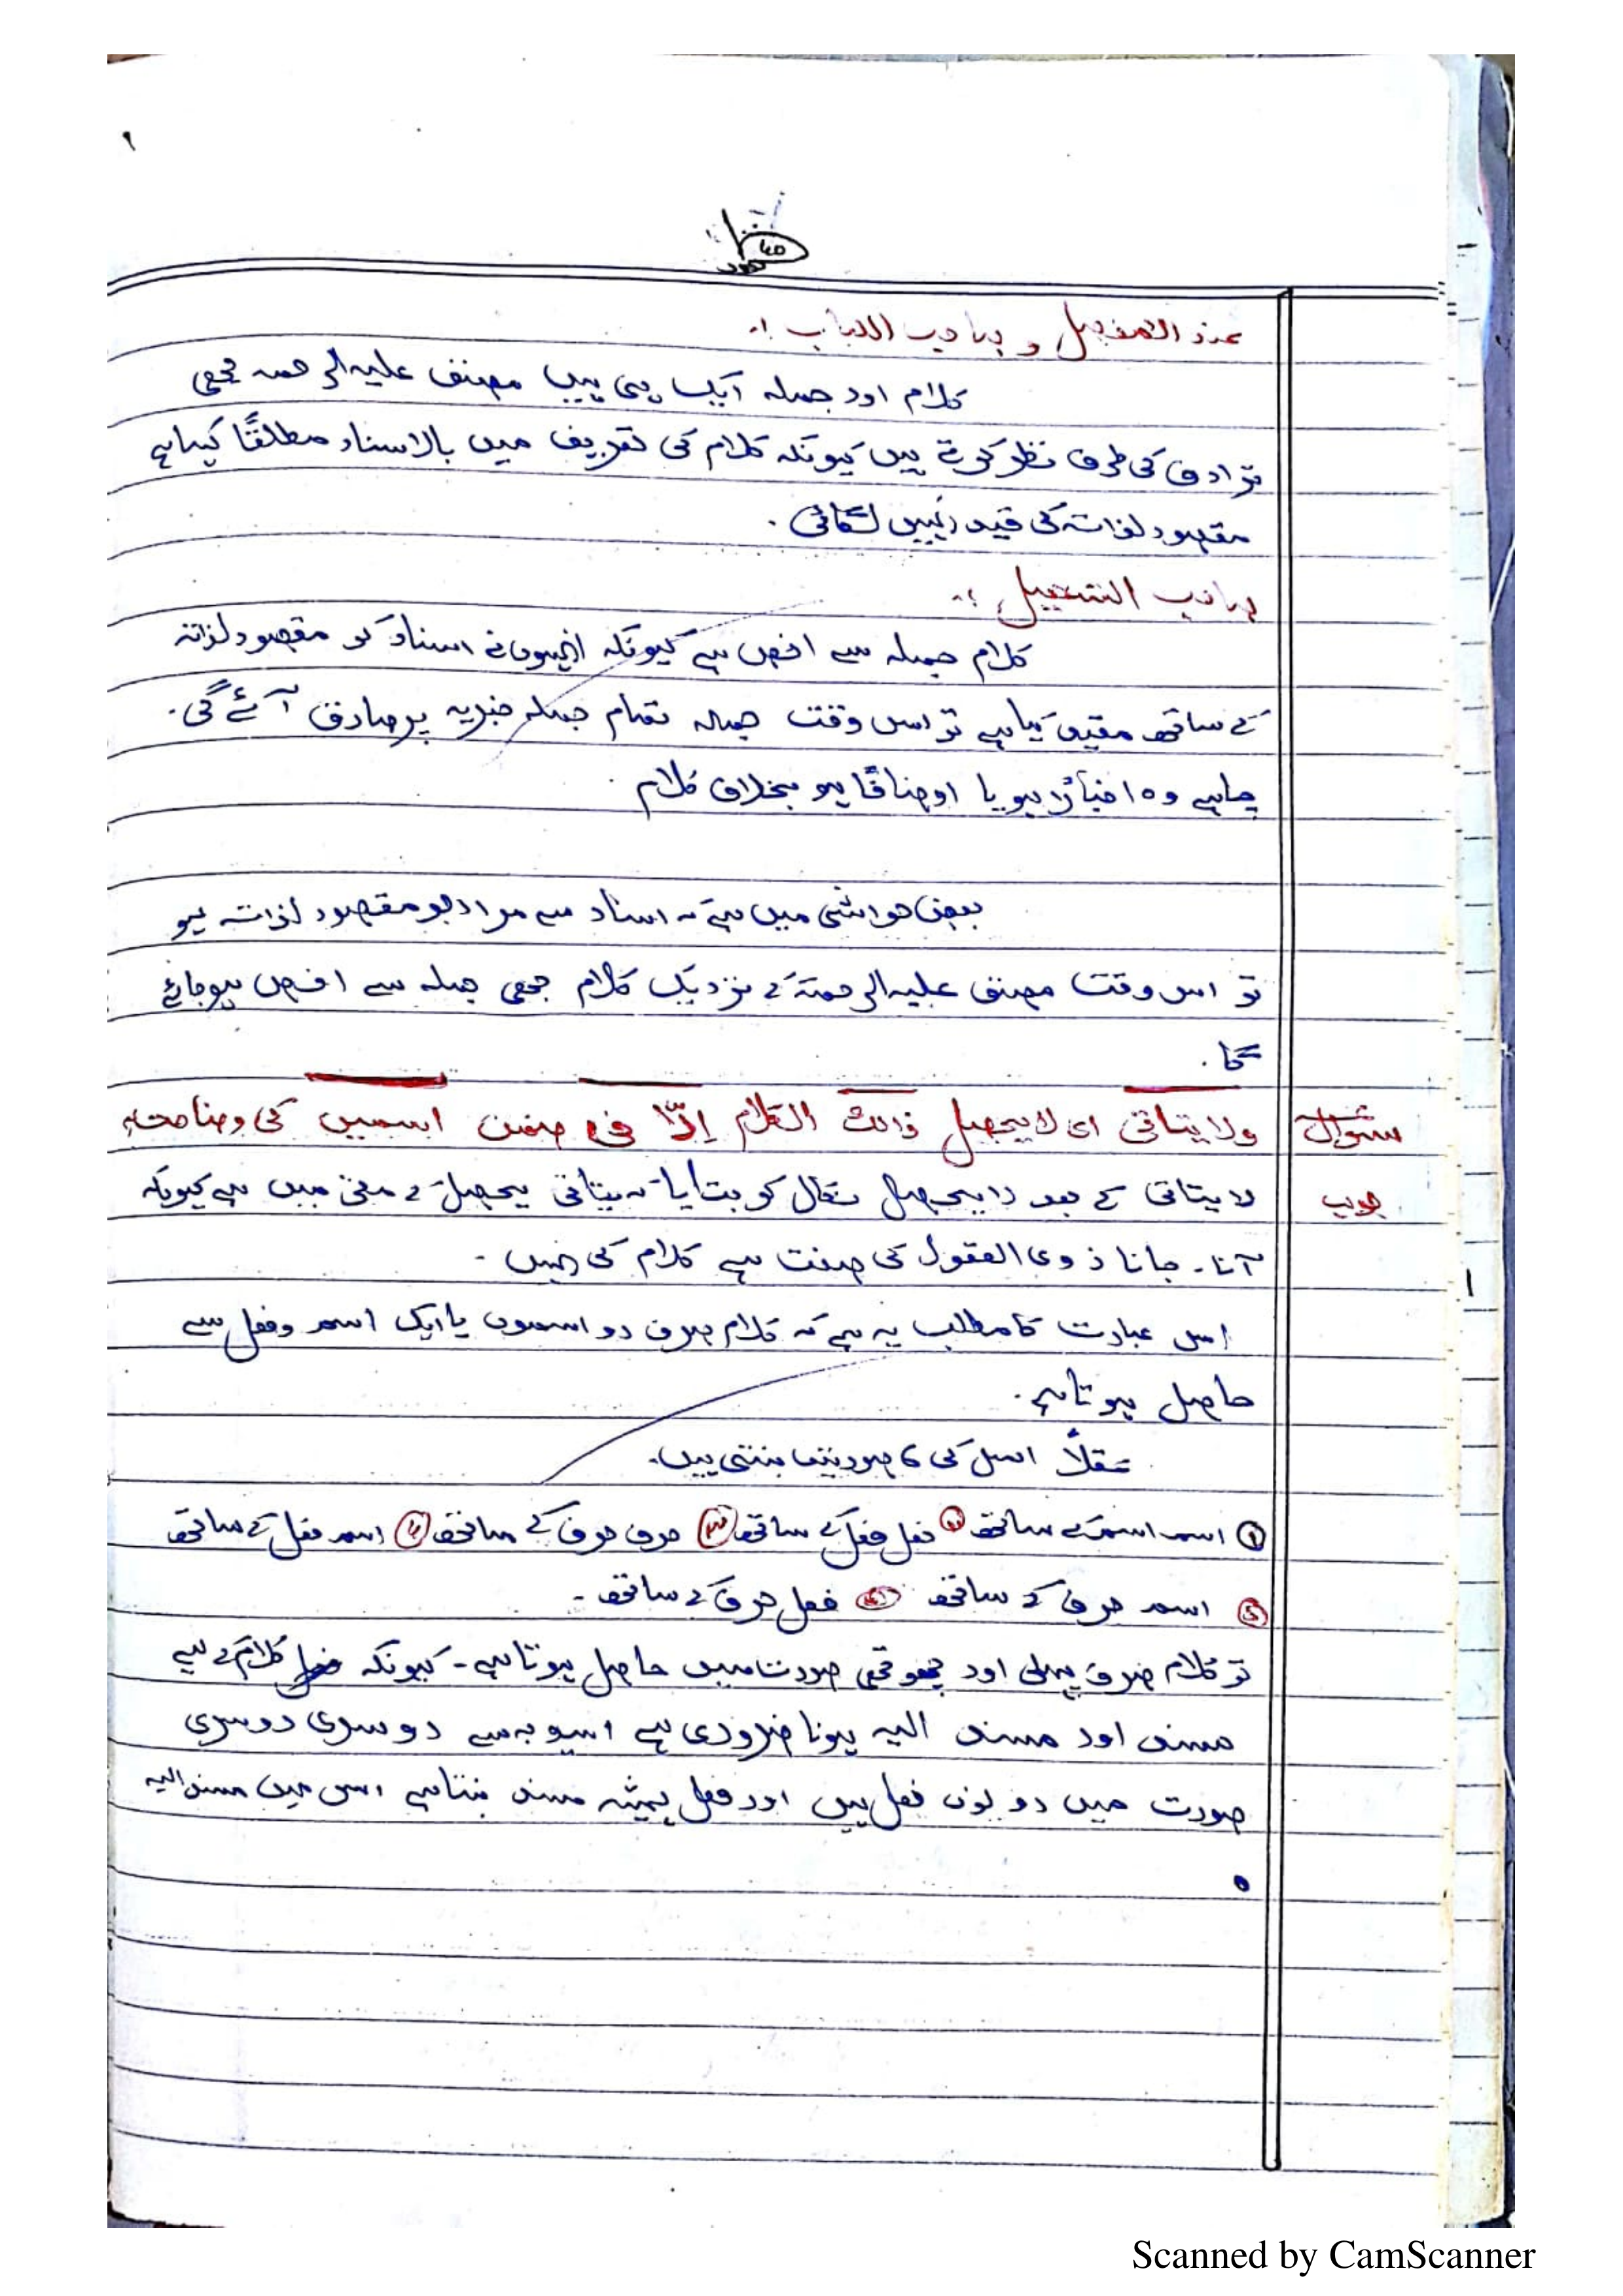 عند المفصل و صاحب اللباب :-
کلام اور جملہ ایک ہی ہیں مصنف علیہ الرحمہ بھی
ترادف کی طرف نظر کرتے ہیں کیونکہ کلام کی تعریف میں بالاسناد مطلقًا کہا ہے
مقصود لذاتہ کی قید نہیں لگائی .
صاحب التسھیل :-
کلام جملہ سے اخص ہے کیونکہ انہوں نے اسناد کو مقصود لذاتہ
کے ساتھ مقید کیا ہے تو اس وقت جملہ تمام جملہ خبریہ پر صادق آئے گی .
چاہے وہ اخبارًا ہو یا اوصافًا ہو بخلاف کلام
بعض حواشی میں ہے کہ اسناد سے مراد جو مقصود لذاتہ ہو
تو اس وقت مصنف علیہ الرحمتہ کے نزدیک کلام بھی جملہ سے اخص ہوجائے
گا .
سوال ولا یتاتی ای لا یحصل ذالک الکلام اِلّا فی ضمن اسمین کی وضاحت
جوب لا یتاتی کے بعد لا یحصل نکال کو بتایا کہ یتاتی یحصل کے معنی میں ہے کیونکہ
آنا - جانا ذوی العقول کی صفت ہے کلام کی نہیں -
اس عبارت کا مطلب یہ ہے کہ کلام صرف دو اسموں یا ایک اسم و فعل سے
حاصل ہوتا ہے .
عقلاً اسکی ۶ صورتیں بنتی ہیں .
① اسم اسم کے ساتھ ② فعل فعل کے ساتھ ③ حرف حرف کے ساتھ ④ اسم فعل کے ساتھ
⑤ اسم حرف کے ساتھ ⑥ فعل حرف کے ساتھ -
تو کلام صرف پہلی اور چھوتھی صورت میں حاصل ہوتا ہے - کیونکہ کلام کے لیے
مسند اور مسند الیہ ہونا ضروری ہے اسیوجہ سے دوسری دوسری
صورت میں دونوں فعل ہیں اور فعل ہمیشہ مسند بنتا ہے اس میں مسند الیہ
Scanned by CamScanner